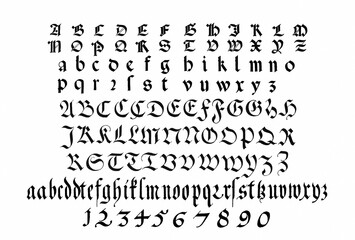 A B C D E F G H I J K L M
N O P Q R S T U V W X Y Z
a b c d e f g h i j k l m n o
p q r ꝛ ſ s t v u w x y z
A B C C D E F F G G H H
J K K L L M N N O O P Q R
R S T T U V W W X Y Z Z
a a b c d d e f g h i k l m n o o p q r ꝛ ſ s t tz u v w x y z
1 2 3 4 5 6 7 8 9 0